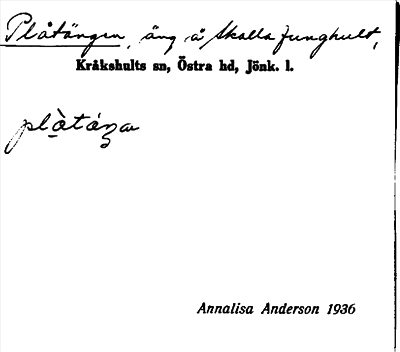 Plåtängen, äng å Skalla Ljunghult,
Kråkshults sn, Östra hd, Jönk. l.
Annalisa Anderson 1936